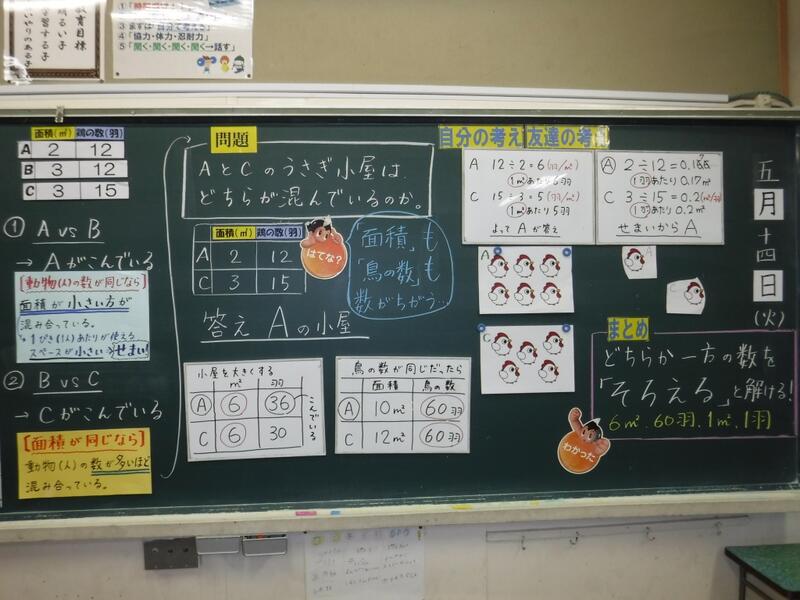 教育目標
明るい子
学習する子
③まずは「自分で考える」
④「協力・体力・忍耐力」
⑤「聞く・聞く・聞く・聞く→話す」
面積(㎡) 鶏の数(羽)
A 2 12
B 3 12
C 3 15
① A vs B
→ Aがこんでいる
[動物(人)の数が同じなら]
面積が小さい方が
混み合っている。
1ぴき(1人)あたりが使える
スペースが小さい→せまい!
② B vs C
→ Cがこんでいる
[面積が同じなら]
動物(人)の数が多いほど
混み合っている。
問題
AとCのうさぎ小屋は、
どちらが混んでいるのか。
面積(㎡) 鶏の数(羽)
A 2 12
C 3 15
はてな?
「面積」も
「鳥の数」も
数がちがう…
答え Aの小屋
小屋を大きくする
㎡ 羽
A 6 36
C 6 30
こんでいる
鳥の数が同じだったら
面積 鳥の数
A 10㎡ 60羽
C 12㎡ 60羽
自分の考え 友達の考え
A 12÷2=6(羽/㎡)
1㎡あたり6羽
C 15÷3=5(羽/㎡)
1㎡あたり5羽
よって A が答え
A 2÷12=0.166
1羽あたり 0.17㎡
C 3÷15=0.2(㎡/羽)
1羽あたり 0.2㎡
せまいから A
A
C
A
C
まとめ
どちらか一方の数を
「そろえる」と解ける!
6㎡、60羽、1㎡、1羽
わかった
五
月
十四
日
(火)